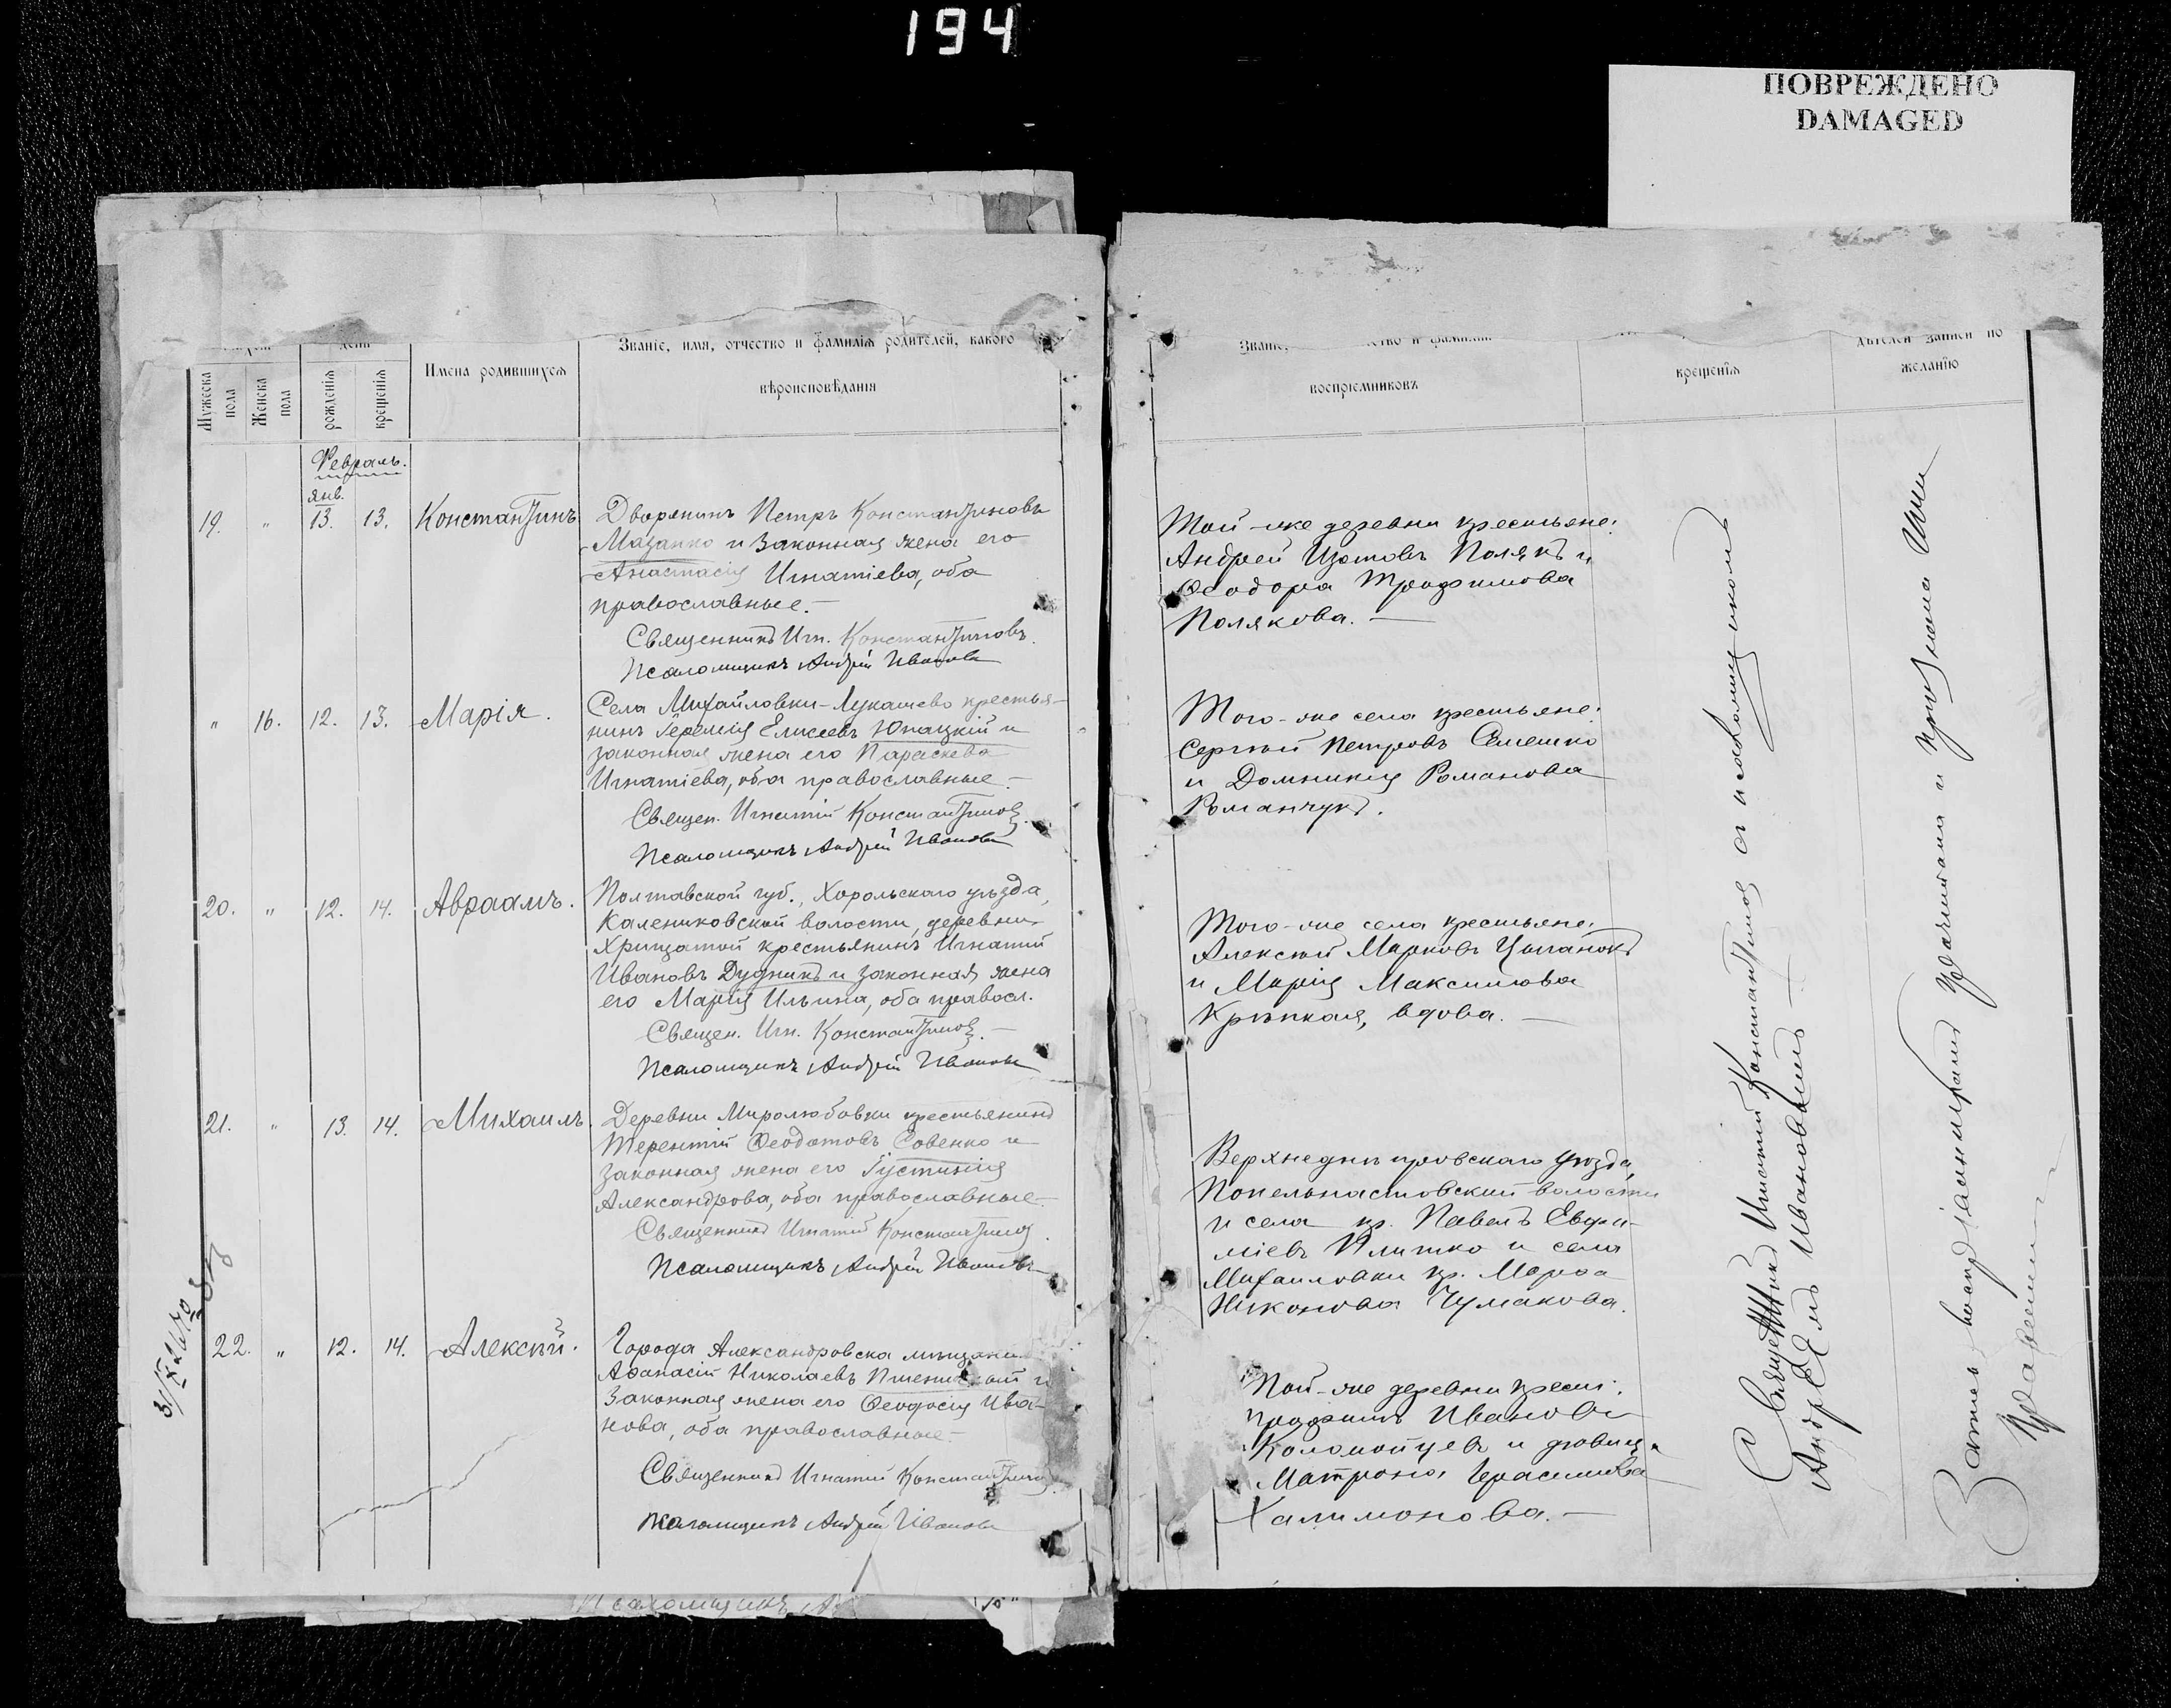 194
ПОВРЕЖДЕНО
DAMAGED
Званіе, имя, отчество и фамилія родителей, какого
вѣроисповѣданія
Имена родившихся
Мужеска пола
Женска пола
рожденія
крещенія
Февраль.
янв.
19. " 13. 13. Константинъ
Дворянинъ Петръ Константиновъ
Мазанко и законная жена его
Анастасія Игнатіева, оба
православные.—
Священникъ Игн. Константиновъ.
Псаломщикъ Андрей Ивановъ
" 16. 12. 13. Марія.
Села Михайловки-Лукашево крестья-
нинъ Іеремія Елисеевъ Юпацкій и
законная жена его Параскева
Игнатіева, оба православные.—
Священ. Игнатій Константиновъ.
Псаломщикъ Андрей Ивановъ
20. " 12. 14. Авраамъ.
Полтавской губ., Хорольскаго уѣзда,
Калениковской волости, деревни
Хрищатой крестьянинъ Игнатій
Ивановъ Дудникъ и законная жена
его Марія Ильина, оба правосл.
Священ. Игн. Константиновъ.—
Псаломщикъ Андрей Ивановъ
21. " 13. 14. Михаилъ.
Деревни Миролюбовки крестьянинъ
Терентій Ѳеодотовъ Совенко и
законная жена его Іустинія
Александрова, оба православные.—
Священникъ Игнатій Константиновъ.
Псаломщикъ Андрей Ивановъ
22. " 12. 14. Алексѣй.
Города Александровска мѣщанинъ
Аѳанасій Николаевъ Пшеничный и
законная жена его Ѳеодосія Ива-
нова, оба православные.—
Священникъ Игнатій Константиновъ
Псаломщикъ Андрей Ивановъ
воспріемниковъ
крещенія
дѣтелей записи по
желанію
Той-же деревни крестьяне:
Андрей Изотовъ Полякъ и
Ѳеодора Трофимова
Полякова.—
Того-же села крестьяне:
Сергѣй Петровъ Семешко
и Домникія Романова
Романчукъ.
Того-же села крестьяне:
Алексѣй Марковъ Цыганокъ
и Марія Максимова
Крѣпкая, вдова.—
Верхнеднѣпровскаго уѣзда,
Попельнастовской волости
и села кр. Павелъ Евфи-
міевъ Плитко и села
Михайловки кр. Марѳа
Никонова Чумакова.
Той-же деревни крест.
Трофимъ Ивановъ
Коломойцевъ и дѣвица
Матрона Герасимова
Халимонова.—
Священникъ Игнатій Константиновъ съ псаломщикомъ
Андреемъ Ивановымъ